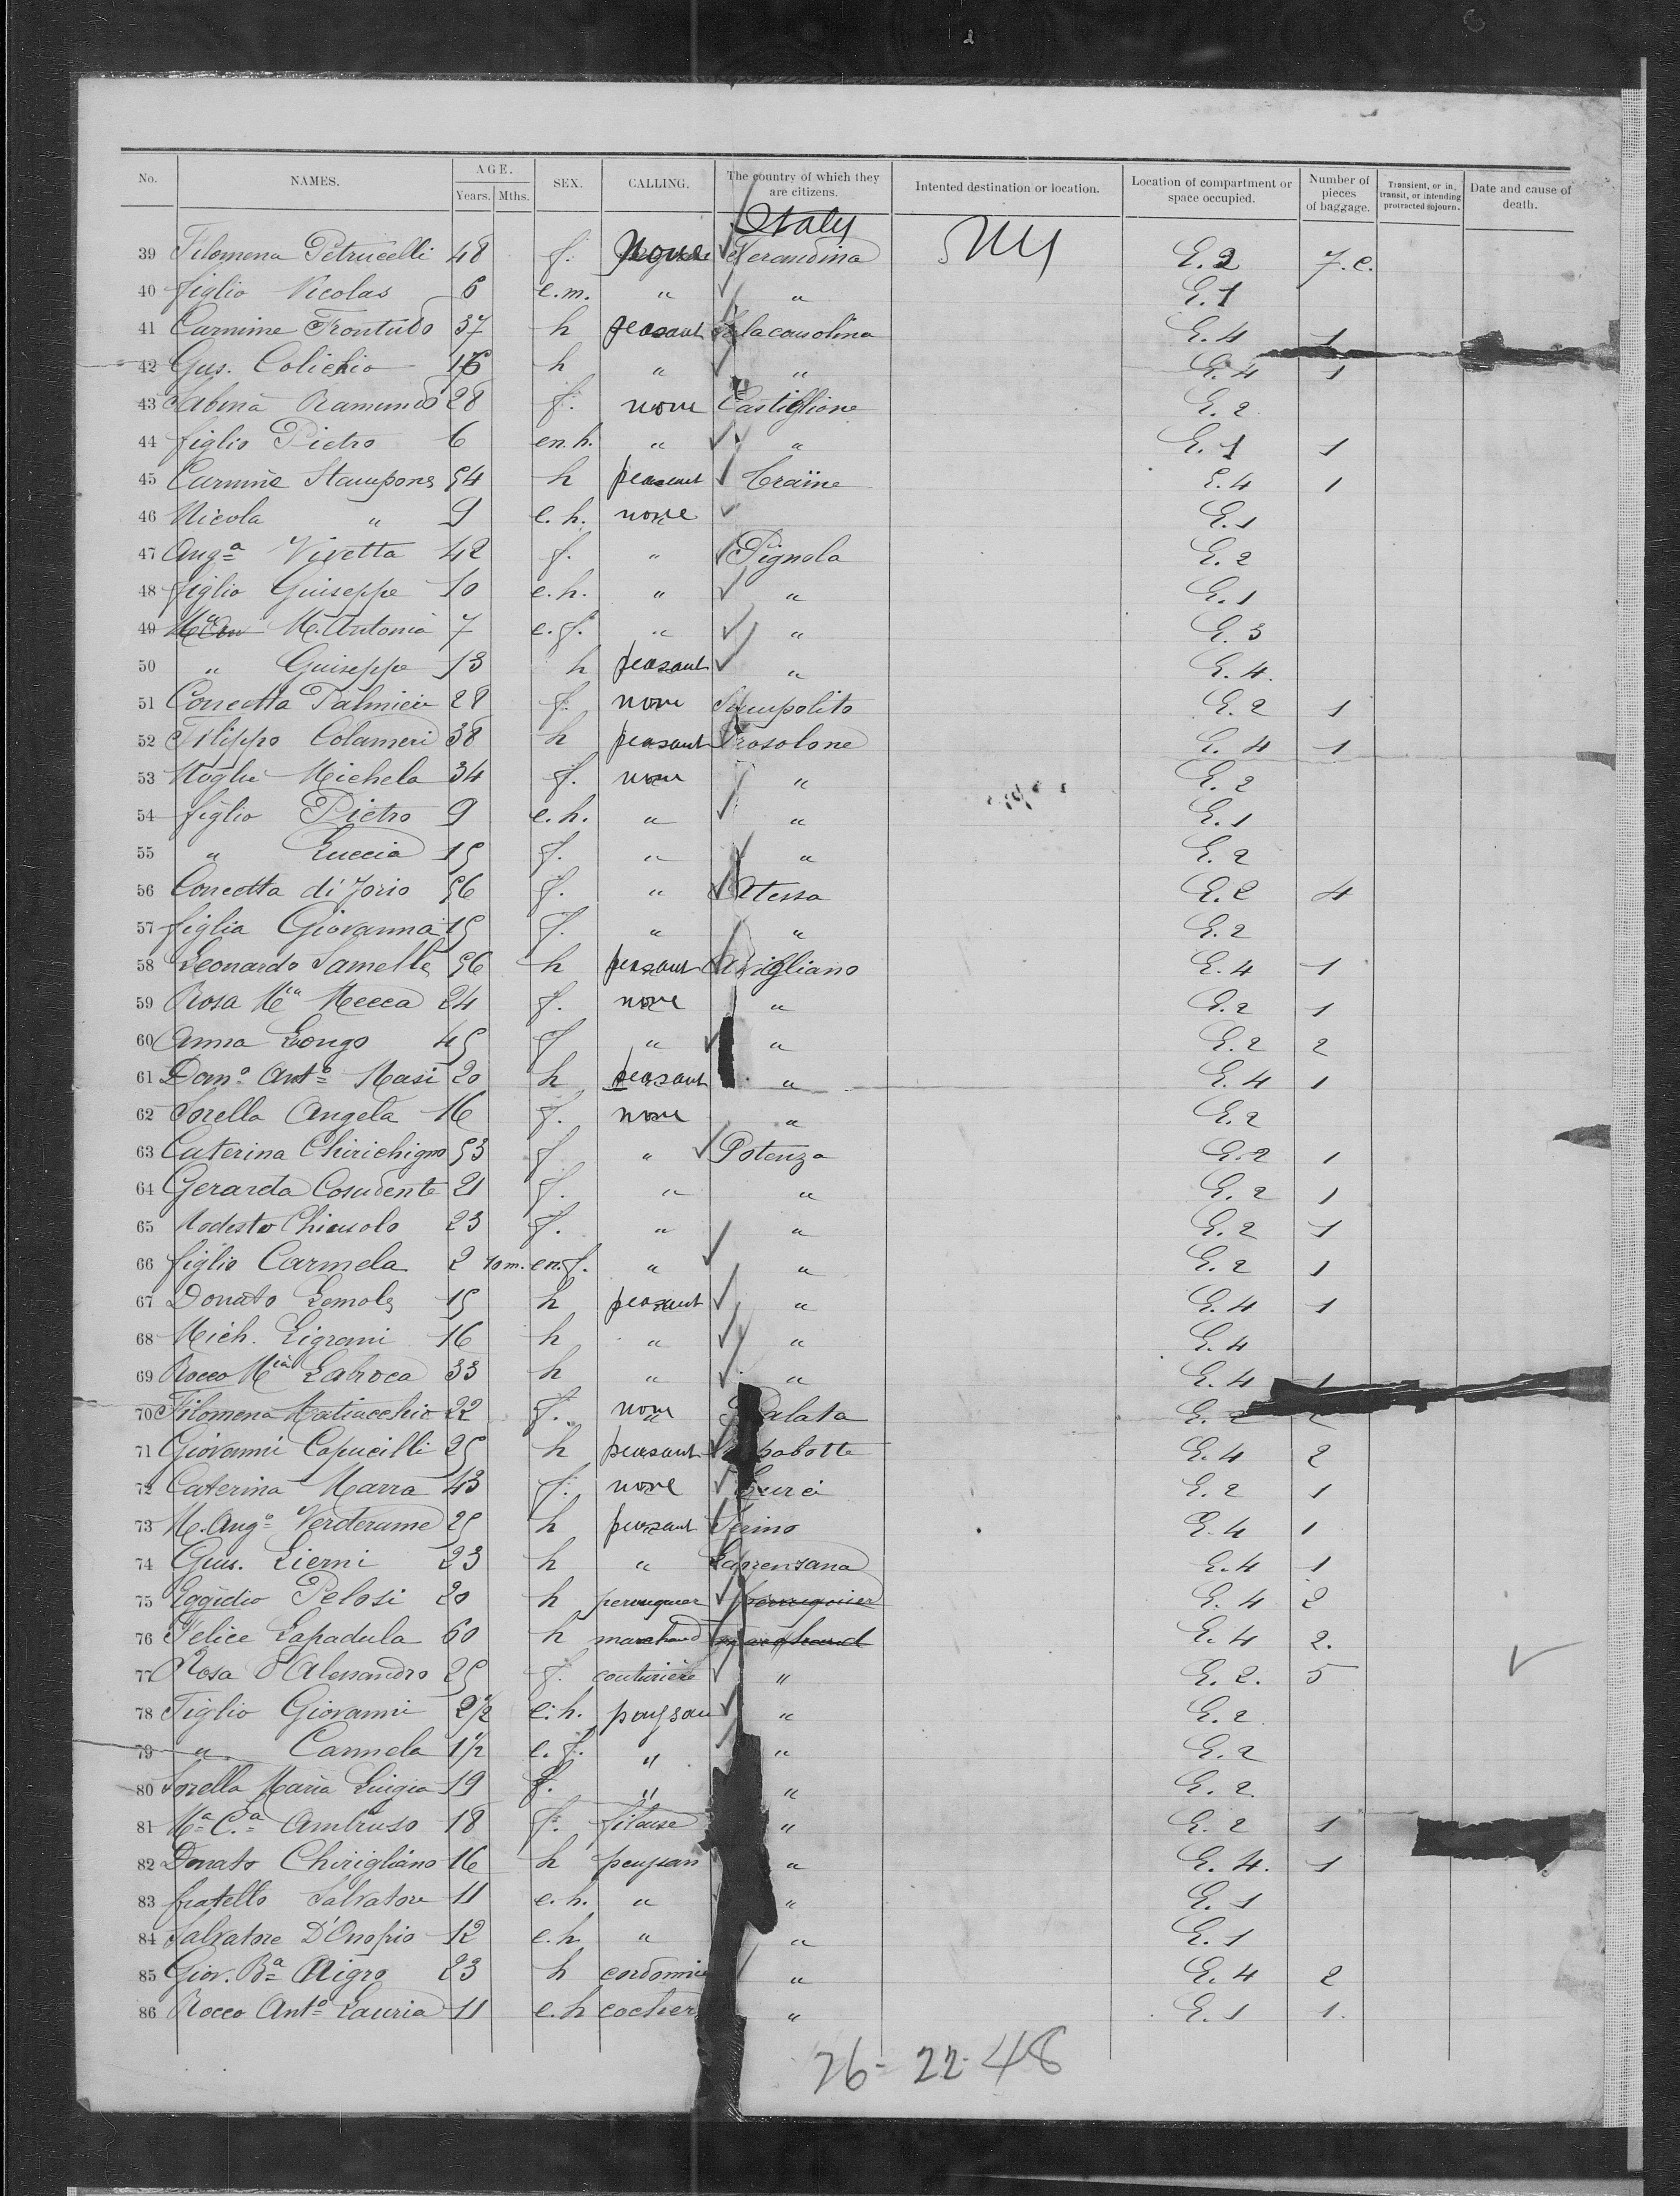 No. NAMES. AGE. Years. Mths. SEX. CALLING. The country of which they are citizens. Intented destination or location. Location of compartment or space occupied. Number of pieces of baggage. Transient, or in transit, or intending protracted sojourn. Date and cause of death.
Italy
39 Filomena Petrucelli 48 f. None Ferandina NY E. 2 7. c.
40 figlio Nicolas 6 e.m. " " E. 1
41 Carmine 37 h peasant E. 4 1
42 Gus. Colichio h " " E. 4 1
43 Sabina Ramundo 28 f. none Castiglione E. 2
44 figlio Pietro 6 en. h. " " E. 1 1
45 Carmine Stampone 54 h peasant E. 4 1
46 Nicola " 9 e. h. none E. 1
47 Anga Vivetta 42 f. " Pignola E. 2
48 figlio Guiseppe 10 e. h. " " E. 1
49 M. Antonia 7 e. f. " " E. 3
50 " Guiseppe 13 h peasant " E. 4.
51 Concetta Palmieri 28 f. none E. 2 1
52 Filippo Colameri 38 h peasant Frosolone E. 4 1
53 Moglie Michela 34 f. none " E. 2
54 figlio Pietro 9 e. h. " " E. 1
55 " Luccia 15 f. " " E. 2
56 Concetta di Jorio 56 f. " Atessa E. 2 4
57 figlia Giovanna 15 f. " " E. 2
58 Leonardo Samelle 56 h peasant Avigliano E. 4 1
59 Rosa Mia Mecca 24 f. none " E. 2 1
60 Anna Longo 45 f " " E. 2 2
61 Domo Anto Masi 20 h peasant " E. 4 1
62 Sorella Angela 16 f. none " E. 2
63 Caterina Chirichigno 53 f " Potenza E. 2 1
64 Gerarda Cosudente 21 f. " " E. 2 1
65 Modesto 23 f. " " E. 2 1
66 figlio Carmela 2 10 m. en. f. " " E. 2 1
67 Donato Lemole 15 h peasant " E. 4 1
68 Mich. Ligrani 16 h " " E. 4
69 Rocco Mia Labroca 33 h " " E. 4 1
70 Filomena Matiacchio 22 f. none Palata E. 2 2
71 Giovanni Capucilli 25 h peasant E. 4 2
72 Caterina Marra 43 f. none E. 2 1
73 M. Ango Verderame 25 h peasant E. 4 1
74 Gius. Lierni 23 h " Laurenzana E. 4 1
75 Eggidio Pelosi 20 h perruquier perruquier E. 4 2
76 Felice Lapadula 60 h marchand marchand E. 4 2.
77 Rosa D'Alessandro 25 f. couturière " E. 2. 5
78 Figlio Giovanni 2½ e. h. paysan " E. 2
79 " Carmela 1½ e. f. " " E. 2
80 Sorella Maria Luigia 19 f. " " E. 2.
81 Ma Ca Ambruso 18 f. fileuse " E. 2 1
82 Donato Chirigliano 16 h paysan " E. 4. 1
83 fratello Salvatore 11 e. h. " " E. 1
84 Salvatore D'Onofrio 12 e. h " " E. 1
85 Giov. Ba Nigro 23 h cordonnier " E. 4 2
86 Rocco Anto Lauria 11 e. h cocher " E. 1 1.
26 - 22 - 48